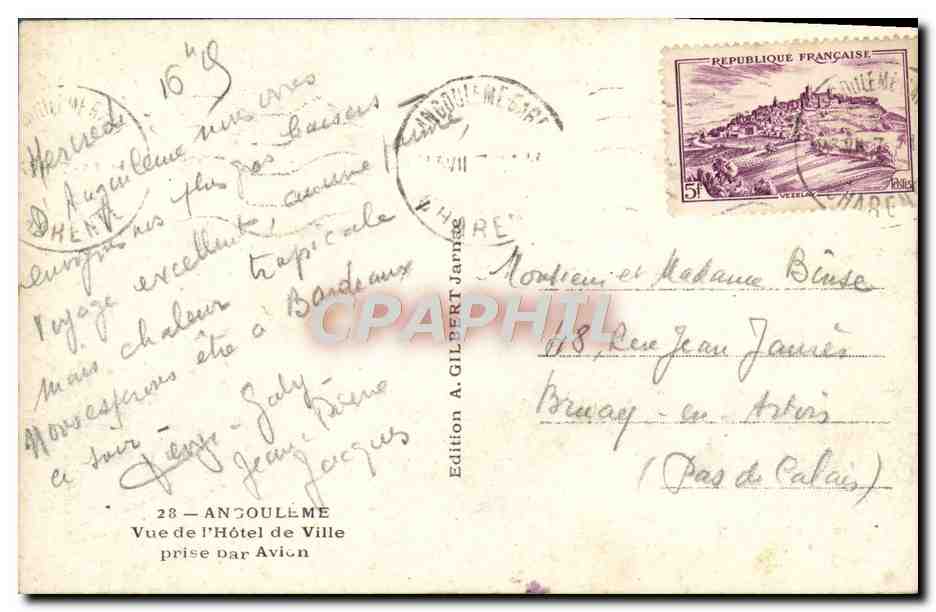 Mercredi 16 h 45
D'Angoulème nous vous
envoyons nos plus gros baisers
Voyage excellent, aucune panne
mais chaleur tropicale
Nous espérons être à Bordeaux
ce soir -
Gaby -
Jean Pierre
Jacques
28 — ANGOULÊME
Vue de l'Hôtel de Ville
prise par Avion
Edition A. GILBERT Jarnac
ANGOULEME GARE
VII
CHARENTE
REPUBLIQUE FRANÇAISE
5F
VEZELAY
Postes
Monsieur et Madame Binse
48, Rue Jean Jaurès
Bruay-en-Artois
(Pas de Calais)
CPAPHIL